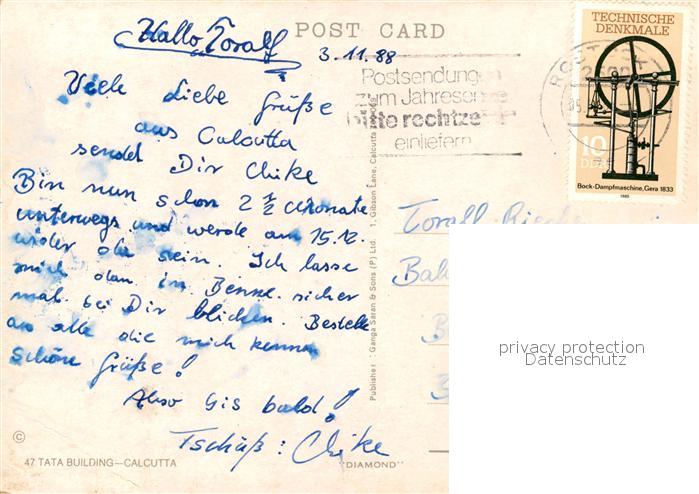 Hallo Toralf
POST CARD
3.11.88
TECHNISCHE
DENKMALE
10
DDR
Bock-Dampfmaschine, Gera 1833
1985
Postsendungen
zum Jahresende
bitte rechtze
einliefern
Viele Liebe Grüße
aus Calcutta
sendet Dir Chike
Bin nun schon 2 1/2 Monate
unterwegs und werde am 15.12.
wider da sein. Ich lasse
mich dan im
sicher
mal bei Dir blicken. Bestelle
an alle die mich kennen
schöne Grüße!
Also bis bald!
Tschüß: Chike
Toralf
Publisher : Ganga Saran & Sons (P) Ltd. 1, Gibson Lane, Calcutta
privacy protection
Datenschutz
©
47 TATA BUILDING—CALCUTTA
"DIAMOND"